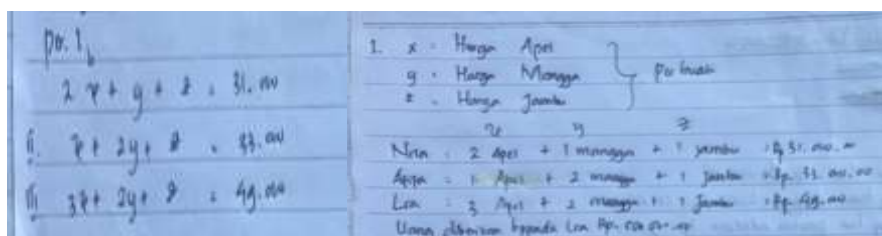 no. 1
2x + y + z = 31.000
ii. x + 2y + z = 33.000
iii 3x + 2y + z = 49.000
1. x = Harga Apel
y = Harga Mangga
z = Harga Jambu
per buah
x y z
Nita = 2 Apel + 1 mangga + 1 jambu = Rp. 31.000.00
= 1 Apel + 2 mangga + 1 Jambu = Rp. 33.000.00
Lia = 3 Apel + 2 mangga + 1 Jambu = Rp. 49.000
Uang diberikan kepada Lia Rp.